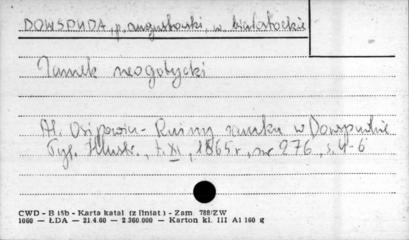 DOWSPUDA, p. augustowski, w. białostockie
Zamek neogotycki
Al. Osipowicz - Ruiny zamku w Dowspudzie
Tyg. Illustr., t. XI, 1865 r, nr 276, s. 4-6
CWD - B 15b - Karta katal (z liniat) - Zam 788/ZW
1060 — ŁDA — 21.4.60 — 2.360.000 — Karton kl. III A1 160 g